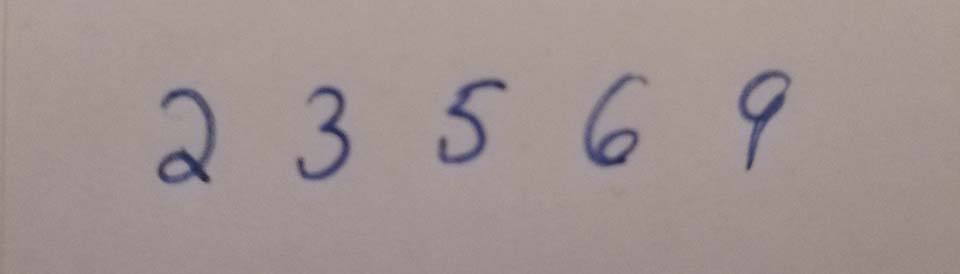 2 3 5 6 9